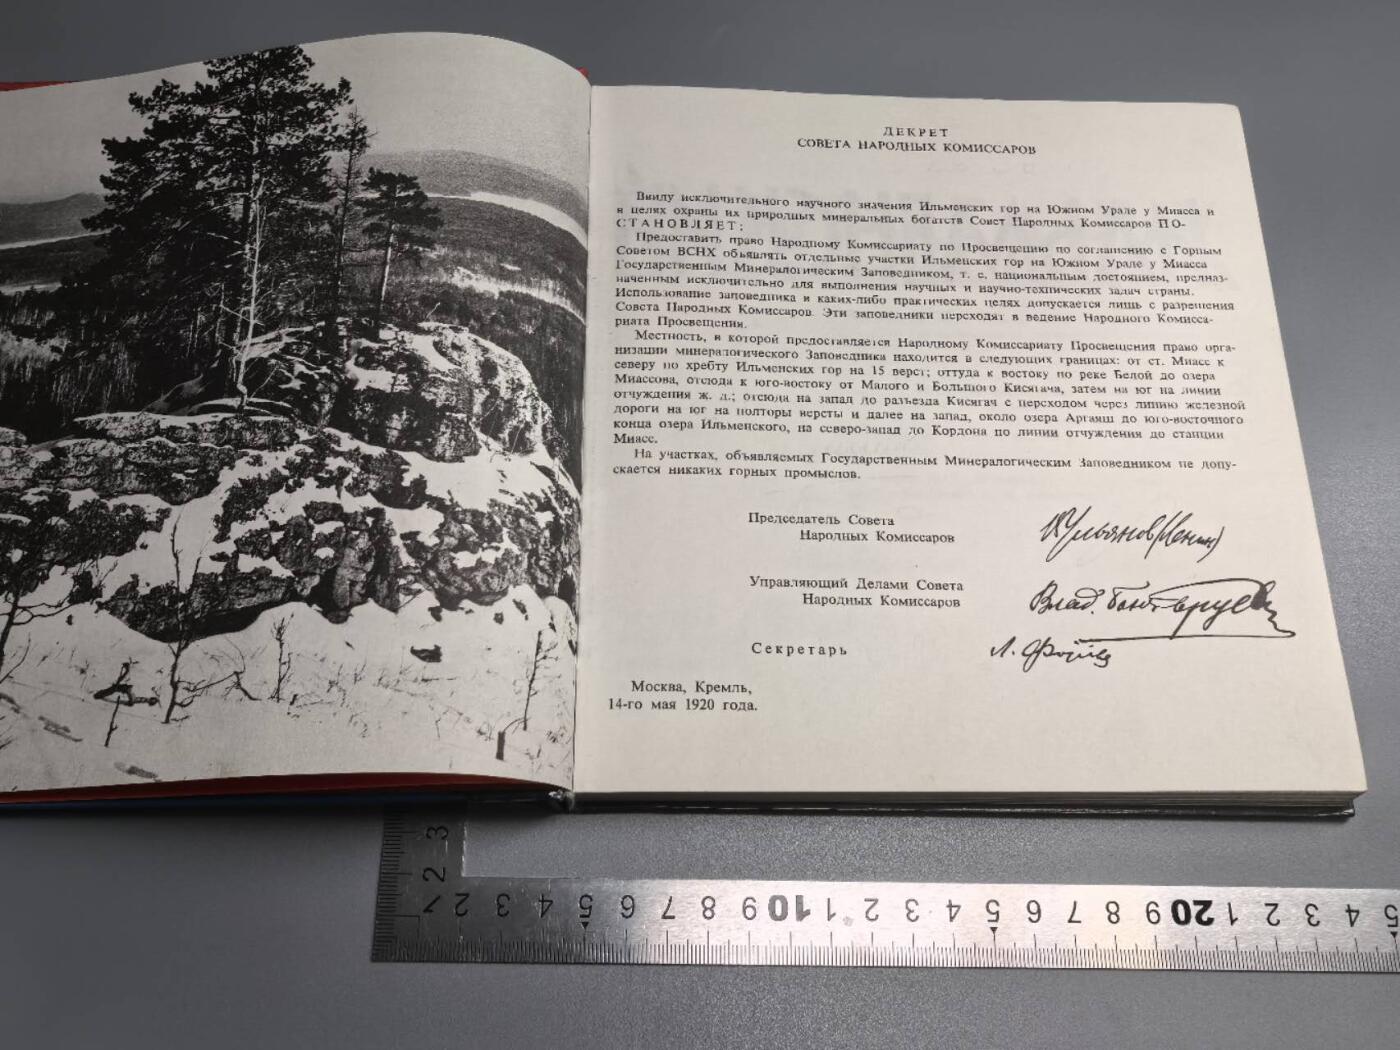 ДЕКРЕТ
СОВЕТА НАРОДНЫХ КОМИССАРОВ
Ввиду исключительного научного значения Ильменских гор на Южном Урале у Миасса и
в целях охраны их природных минеральных богатств Совет Народных Комиссаров ПО-
СТАНОВЛЯЕТ:
Предоставить право Народному Комиссариату по Просвещению по соглашению с Горным
Советом ВСНХ объявлять отдельные участки Ильменских гор на Южном Урале у Миасса
Государственным Минералогическим Заповедником, т. е. национальным достоянием, предназ-
наченным исключительно для выполнения научных и научно-технических задач страны.
Использование заповедника в каких-либо практических целях допускается лишь с разрешения
Совета Народных Комиссаров. Эти заповедники переходят в ведение Народного Комисса-
риата Просвещения.
Местность, в которой предоставляется Народному Комиссариату Просвещения право орга-
низации минералогического Заповедника находится в следующих границах: от ст. Миасс к
северу по хребту Ильменских гор на 15 верст; оттуда к востоку по реке Белой до озера
Миассова, отсюда к юго-востоку от Малого и Большого Кисягача, затем на юг на линии
отчуждения ж. д.; отсюда на запад до разъезда Кисягач с переходом через линию железной
дороги на юг на полторы версты и далее на запад, около озера Аргаяш до юго-восточного
конца озера Ильменского, на северо-запад до Кордона по линии отчуждения до станции
Миасс.
На участках, объявляемых Государственным Минералогическим Заповедником не допу-
скается никаких горных промыслов.
Председатель Совета
Народных Комиссаров
В Ульянов (Ленин)
Управляющий Делами Совета
Народных Комиссаров
Влад. Бонч-Бруевич
Секретарь
Л. Фотиева
Москва, Кремль,
14-го мая 1920 года.
3
2
1 2 3 4 5 6 7 8 9 10 1 2 3 4 5 6 7 8 9 20 1 2 3 4 5